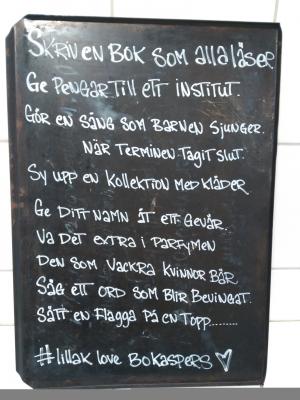 SKRIV EN BOK SOM ALLA LÄSER
GE PENGAR TILL ETT INSTITUT.
GÖR EN SÅNG SOM BARNEN SJUNGER.
NÄR TERMINEN TAGIT SLUT.
SY UPP EN KOLLEKTION MED KLÄDER
GE DITT NAMN ÅT ETT GEVÄR.
VA DET EXTRA I PARFYMEN
DEN SOM VACKRA KVINNOR BÄR
SÄG ETT ORD SOM BLIR BEVINGAT.
SÄTT EN FLAGGA PÅ EN TOPP.........
#lillak love BOKASPERS ♡